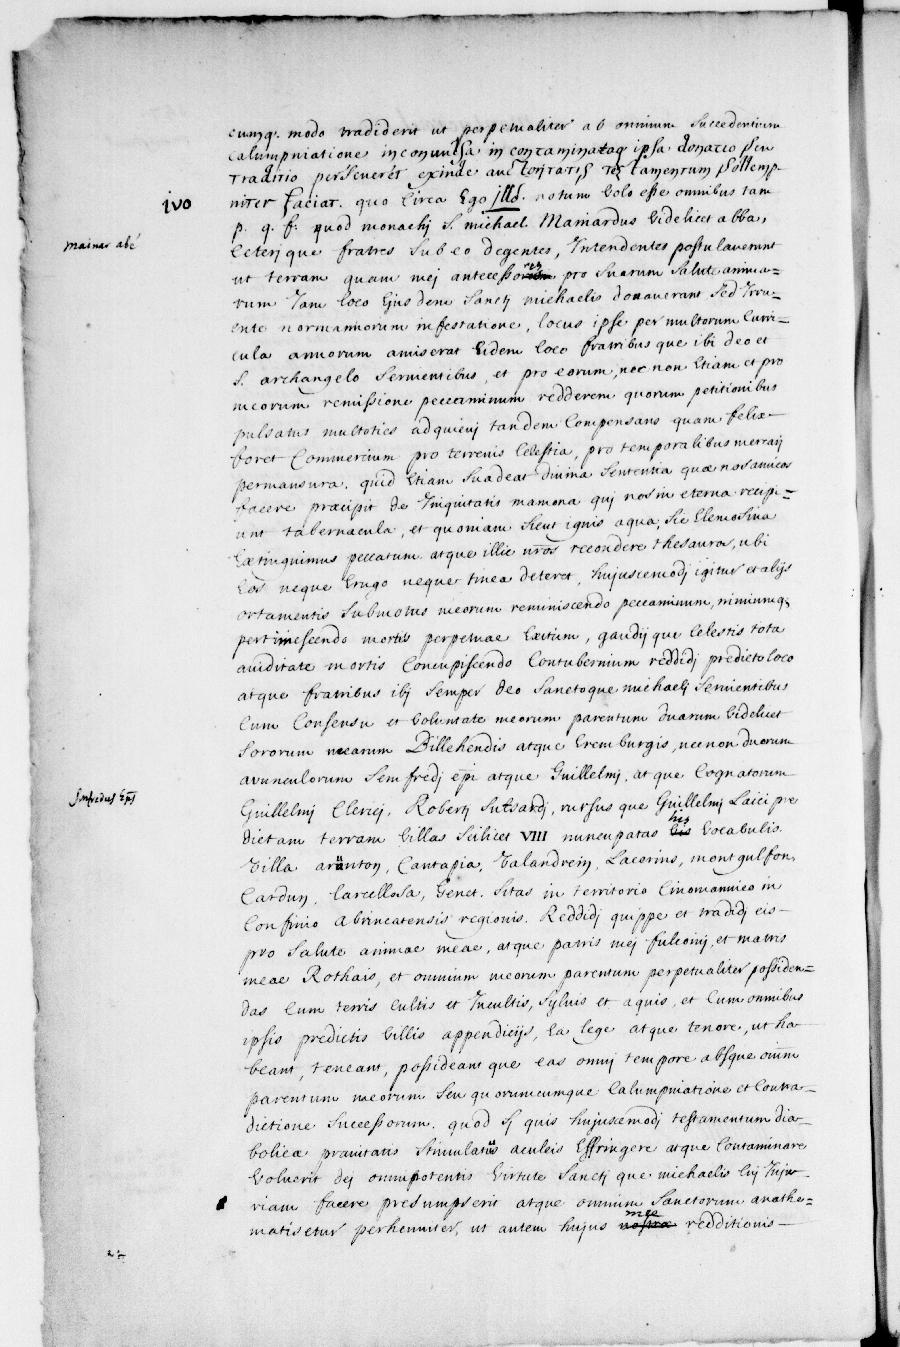 cumq. modo tradiderit ut perpetualiter ab omnium succedentium
calumpniatione inconvulsa in contaminataq ipsa donatio seu
traditio perseveret exinde auctoritatis testamentum sollemp-
niter faciat. quo circa Ego illd. notum volo esse omnibus tam
ivo
p. q. f. quod monachij S. michael. Mainardus videlicet abba,
mainar abé
ceterique fratres sub eo degentes, Intendentes postulaverunt
ut terram quam mej antecessores pro suarum salute anima=
rum Jam loco Ejusdem Sanctj michaelis donaverant sed Irru=
ente normannorum infestatione, locus ipse per multorum Curri=
cula annorum amiserat Eidem loco fratribusque ibi deo et
S. archangelo servientibus, et pro eorum, nec non Etiam et pro
meorum remissione peccaminum redderem quorum petitionibus
pulsatus multoties adquievj tandem Compensans quam felix
foret Commercium pro terrenis Celestia, pro temporalibus mercarij
permansura. quid Etiam suadeat divina sententia quae nos amicos
facere praecipit de Iniquitatis mamona qui nos in eterna recipi=
unt tabernacula, et quoniam sicut ignis aqua sic Elemosina
Extinguimus peccatum atque illic nros recondere thesauros, ubi
Eos neque Erugo neque tinea deteret, hujuscemodj igitur et alijs
ortamentis submotus meorum reminiscendo peccaminum, nimiumq;
pertimescendo mortis perpetuae Exitum, gaudijque Celestis tota
aviditate mortis Concupiscendo Contubernium reddidj predicto loco
atque fratribus ibj semper deo sanctoque michaelj servientibus
Cum Consensu et voluntate meorum parentum duarum videlicet
sororum mearum Billehendis atque Eremburgis, nec non duorum
avunculorum senfredj epi atque Guillelmj, atque Cognatorum
Guillelmj Clericj, Robertj sutsardj, rursusque Guillelmj Laici pre
Senfredus Eps
dictam terram Villas Scilicet VIII nuncupatas his Vocabulis.
Villa arünton, Cantapia, Valandrein, Lacerius, mont gulfon,
Cardun, Carcellosa, Genct. Sitas in territorio Cinomannico in
Confinio abrincatensis regionis. Reddidj quippe et tradidj eis-
pro salute animae meae, atque patris mej fulconij, et matris
meae Rothais, et omnium meorum parentum perpetualiter possiden=
das Cum terris cultis et Incultis, sylvis et aquis, et Cum omnibus
ipsis predictis Villis appendicijs, Ea lege atque tenore, ut ha-
beant, teneant, possideantque eas omnj tempore absque omm
parentum meorum seu quorumcumque Calumpniatione et Contra-
dictione successorum. quod sj quis hujuscemodj testamentum dia-
bolica pravitatis stimulatus aculeis Effringere atque Contaminare
Voluerit dej omnipotentis Virtute sanctj que michaelis Cuj Inju-
riam facere presumpserit atque omnium sanctorum anathe=
matisetur perhenniter, ut autem hujus mee redditionis-